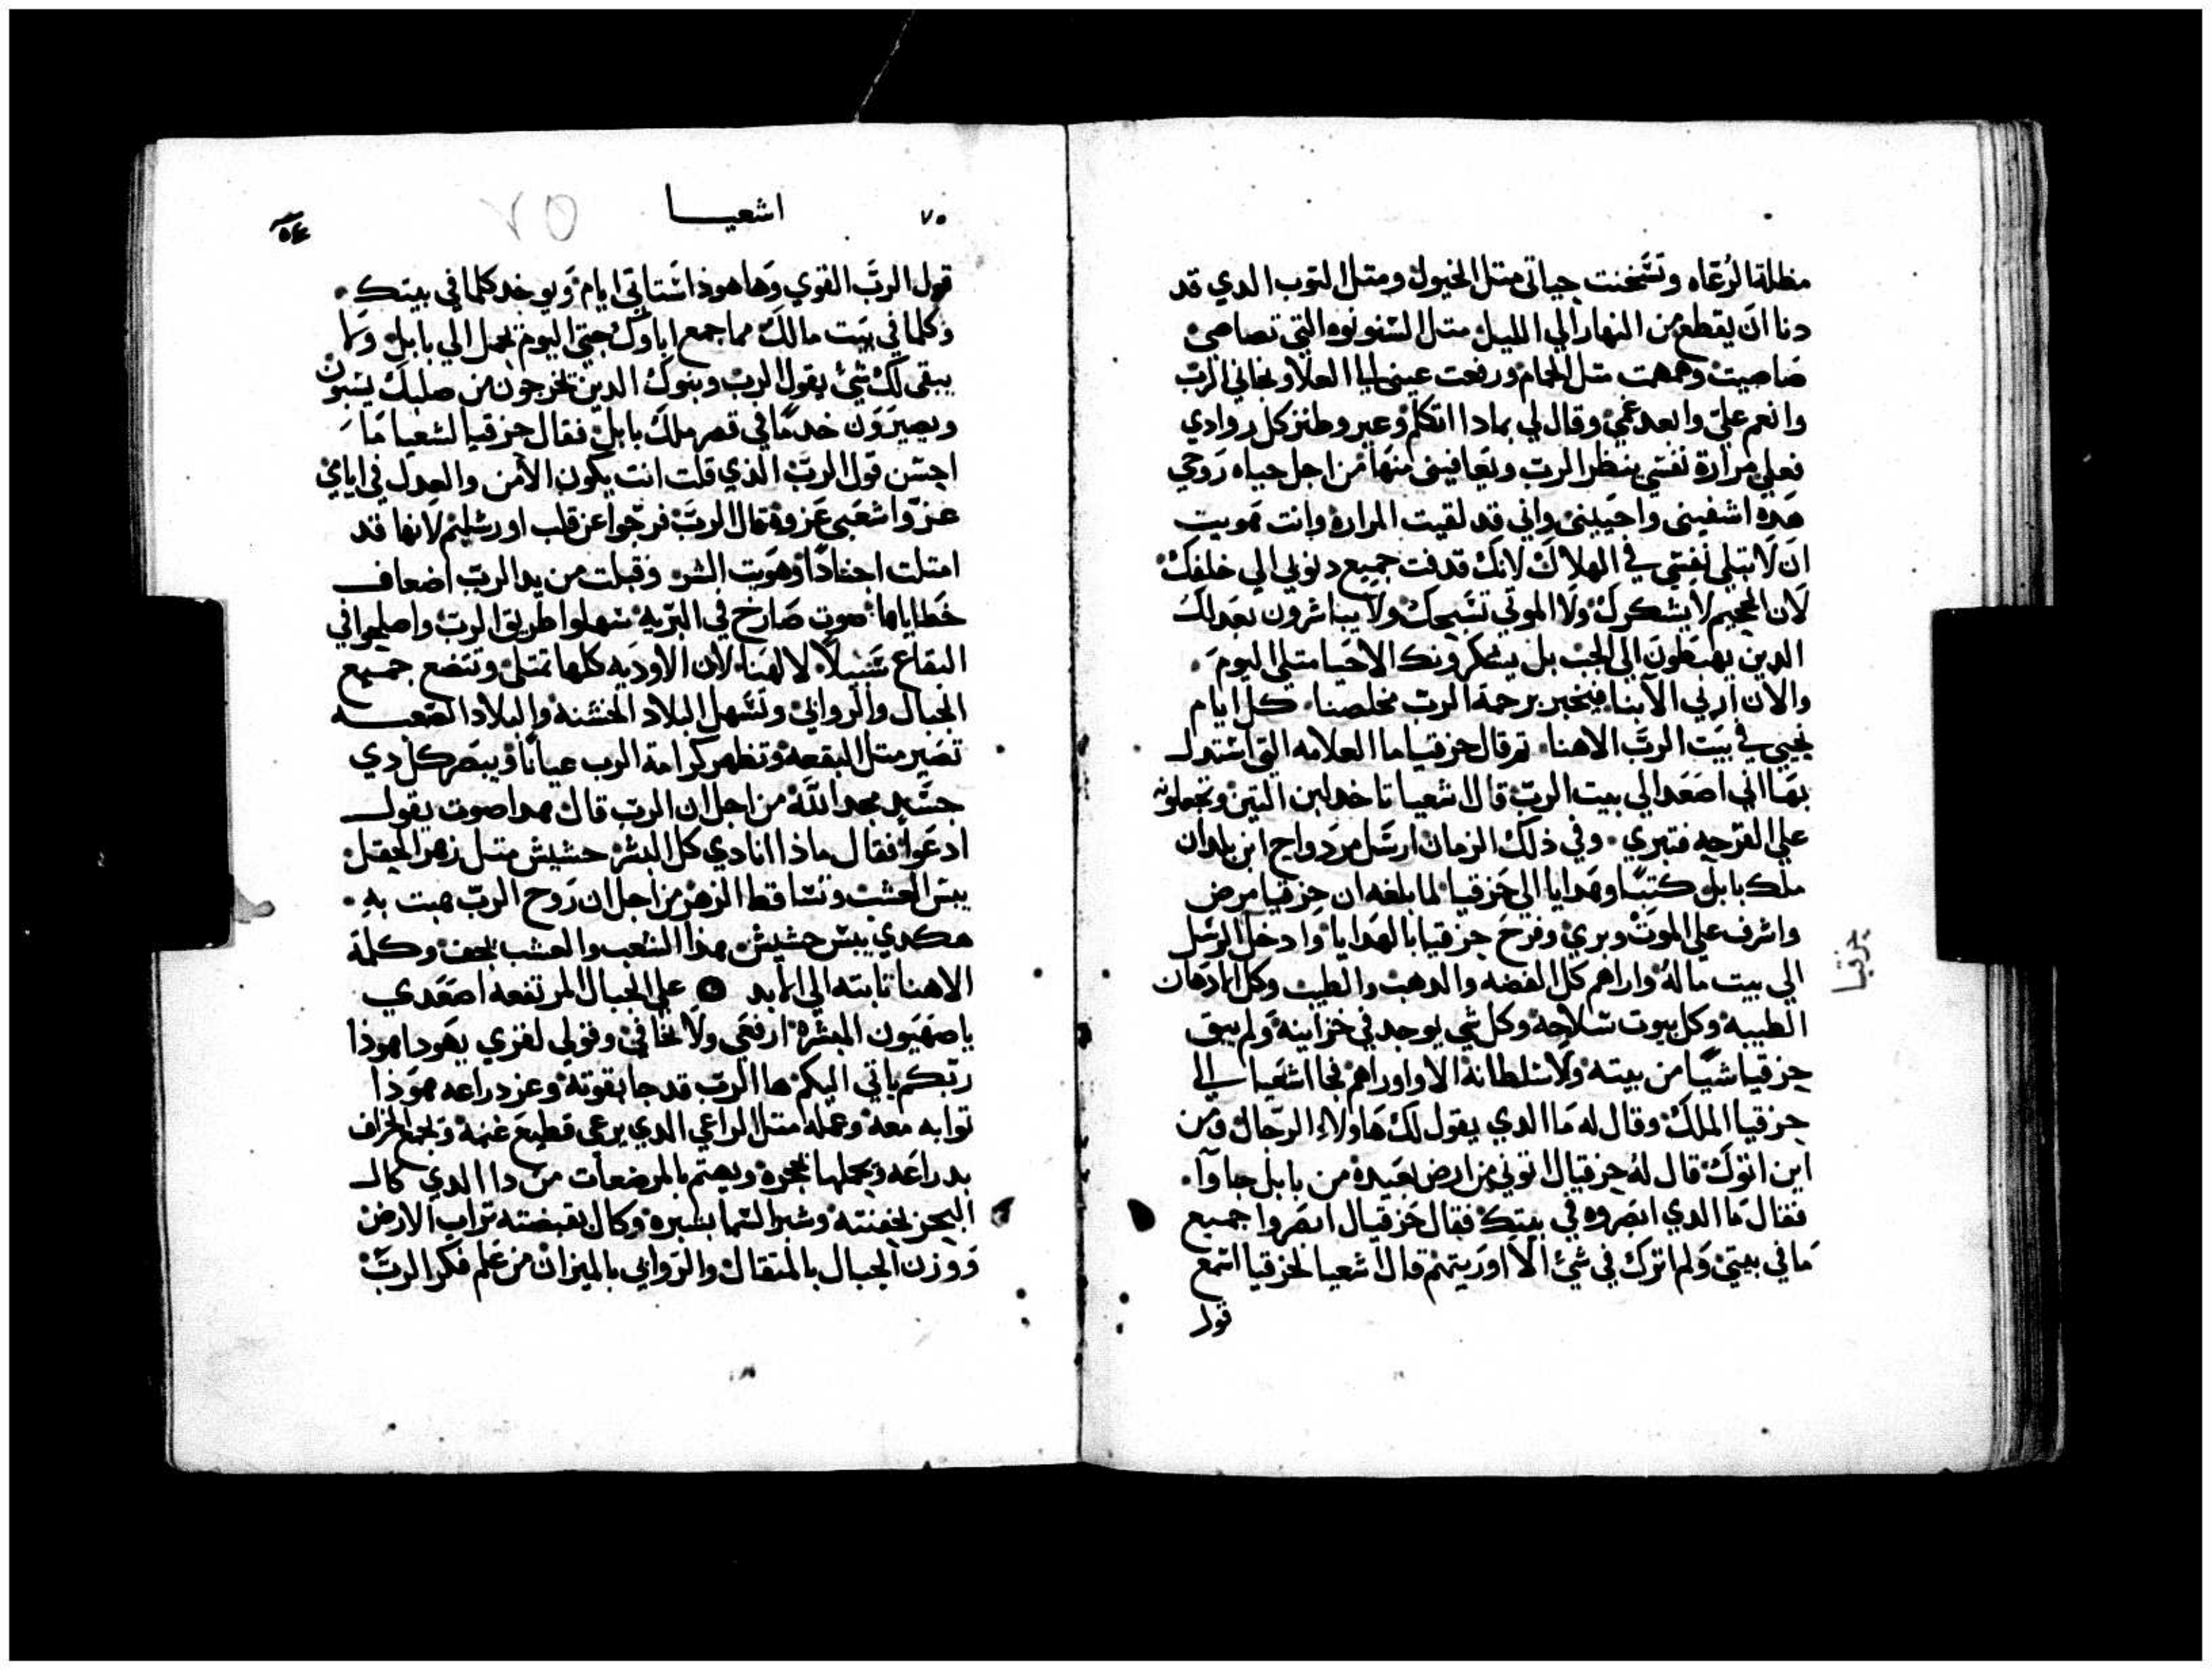 مظلة الرعاه وتشخنت حياتي متل الخيول ومتل التوب الدي قد
دنا ان يقطع من النهار الي الليل متل السنونوه التي تصاصي
صاصيت وهمهمت متل الحمام ورفعت عيني الي العلا ونجاني الرب
وانعم علي وابعد غمي وقال لي بمادا اتكلم وعبر وطنز كل روادي
فعلي مرارة نفسي ينظر الرب ويعافيني منها من اجل حياه روحي
هده اشفيني واحييني واني قد لقيت المراره وانت هويت
ان لا تبلي نفسي في الهلاك لانك قدفت جميع دنوبي الي خلفك
لان الجحيم لا يشكرك ولا الموتي تسبحك ولا يباشرون بعدلك
الدين يهبطون الي الجب بل يشكرونك الاحيا متلي اليوم
والان ارني الابنا فيخبر برحمة الرب مخلصنا كل ايام
نحيي في بيت الرب الاهنا تم قال حزقيا ما العلامه التي استدل
بها اني اصعد الي بيت الرب قال اشعيا تاخد لبن التين وتجعلونه
علي القرحه فتبري وفي ذلك الزمان ارسل مردواح ابن بلدان
ملك بابل كتبا وهدايا الي حزقيا لما بلغه ان حزقيا مرض
واشرف علي الموت وبري وفرح حزقيا بالهدايا وادخل الرسل
الي بيت ماله واراهم كل الفضه والدهب والطيب وكل الادهان
الطيبه وكل بيوت سلاحه وكل شي يوجد في خزاينه ولم يبق
حزقيا شيا من بيته ولا سلطانه الا واوراهم فجا اشعيا الي
حزقيا الملك وقال له ما الدي يقول لك هاولاء الرجال ومن
اين اتوك قال له حزقيال اتوني من ارض بعيده من بابل جاوا
فقال ما الدي ابصروه في بيتك فقال حزقيال ابصروا جميع
ما في بيتي ولم اترك في شئ الا اوريتهم قال اشعيا لحزقيا اسمع
قول
حزقيا
٧٥
اشعيا
٧٥
قول الرب القوي وها هوذا ستاتي ايام ويوخد كلما في بيتك
وكلما في بيت مالك مما جمع اباوك حتي اليوم يحمل الي بابل ولا
يبقي لك شئ يقول الرب وبنوك الدين يخرجون من صلبك يسبون
ويصيرون خدما في قصر ملك بابل فقال حزقيا لشعيا ما
احسن قول الرب الذي قلت انت يكون الامن والعدل في ايامي
عزوا شعبي عزوه قال الرب فرحوا عن قلب اورشليم لانها قد
امتلت اجنادا وهويت الشر وقبلت من يد الرب اضعاف
خطاياها صوت صارخ في البريه سهلوا طريق الرب واصلحوا في
البقاع سبيلا لالهنا لان الاوديه كلها تمتلي وتتضع جميع
الجبال والروابي وتسهل البلاد الخشنه والبلاد الصعبه
تصير متل البقعه وتظهر كرامة الرب عيانا ويبصر كل دي
جسد مجد الله من اجل ان الرب قال هدا صوت يقول
ادعوا فقال ماذا انادي كل البشر حشيش متل زهر الحقل
يبس العشب وتساقط الزهر من اجل ان روح الرب هبت به
هكدي يبس حشيش هذا الشعب والعشب يجف وكلمة
الاهنا تابته الي الابد علي الجبال المرتفعه اصعدي
يا صهيون المبشره ارفعي ولا تخافي وقولي لقري يهودا هوذا
ربكم ياتي اليكم ها الرب قد جا بقوته وعز دراعه هوذا
توابه معه وعمله متل الراعي الدي يرعي قطيع غنمه ويجمع الخراف
بدراعه ويحملها بحجره ويهتم بالمرضعات من دا الدي كال
البحر بحفنته وشبر السما بشبره وكال بقبضته تراب الارض
ووزن الجبال بالمتقال والروابي بالميزان من علم فكر الرب